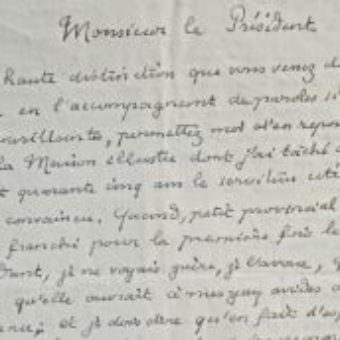 Monsieur le Président
haute distinction que vous venez d
en l'accompagnant de paroles si
bienveillantes, permettez moi d'en repor
la Maison illustre dont j'ai tâché d
quarante cinq ans le serviteur
convaincu. Quand, petit provincial
franchi pour la première fois le
je ne voyais guère, je l'avoue, q
qu'elle ouvrait à mes yeux avides d
et je dois dire qu'en fait d'es